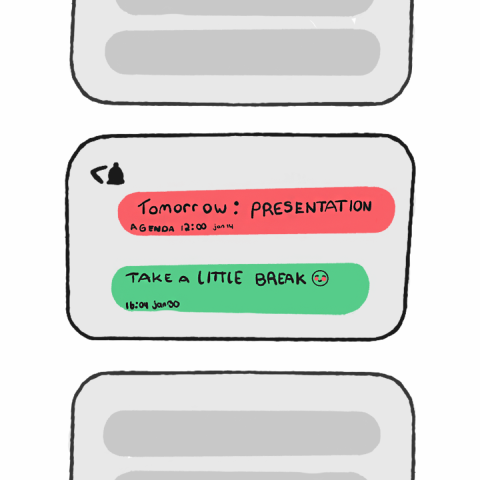 Tomorrow: PRESENTATION
AGENDA 12:00 jan 14
TAKE A LITTLE BREAK
16:04 Jan 30